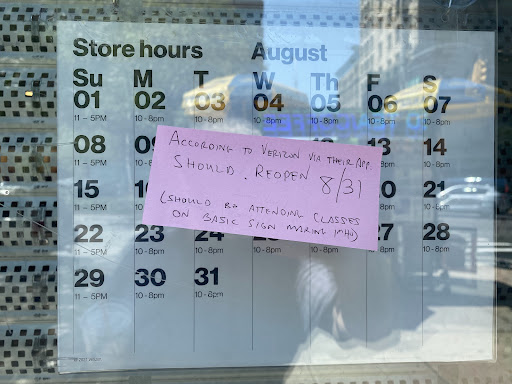 Store hours August
Su M T W Th F S
01 02 03 04 05 06 07
11 – 5PM 10-8pm 10-8pm 10-8pm 10-8pm 10-8pm 10-8pm
08 09 13 14
11 – 5PM 10-8pm
ACCORDING TO VERIZON VIA THEIR APP.
SHOULD. REOPEN 8/31
(SHOULD BE ATTENDING CLASSES
ON BASIC SIGN MAKING IMHO)
15 20 21
11 – 5PM 10-8pm
22 23 24 27 28
11 – 5PM 10-8pm 10-8pm 10-8pm 10-8pm 10-8pm 10-8pm
29 30 31
11 – 5PM 10-8pm 10-8pm